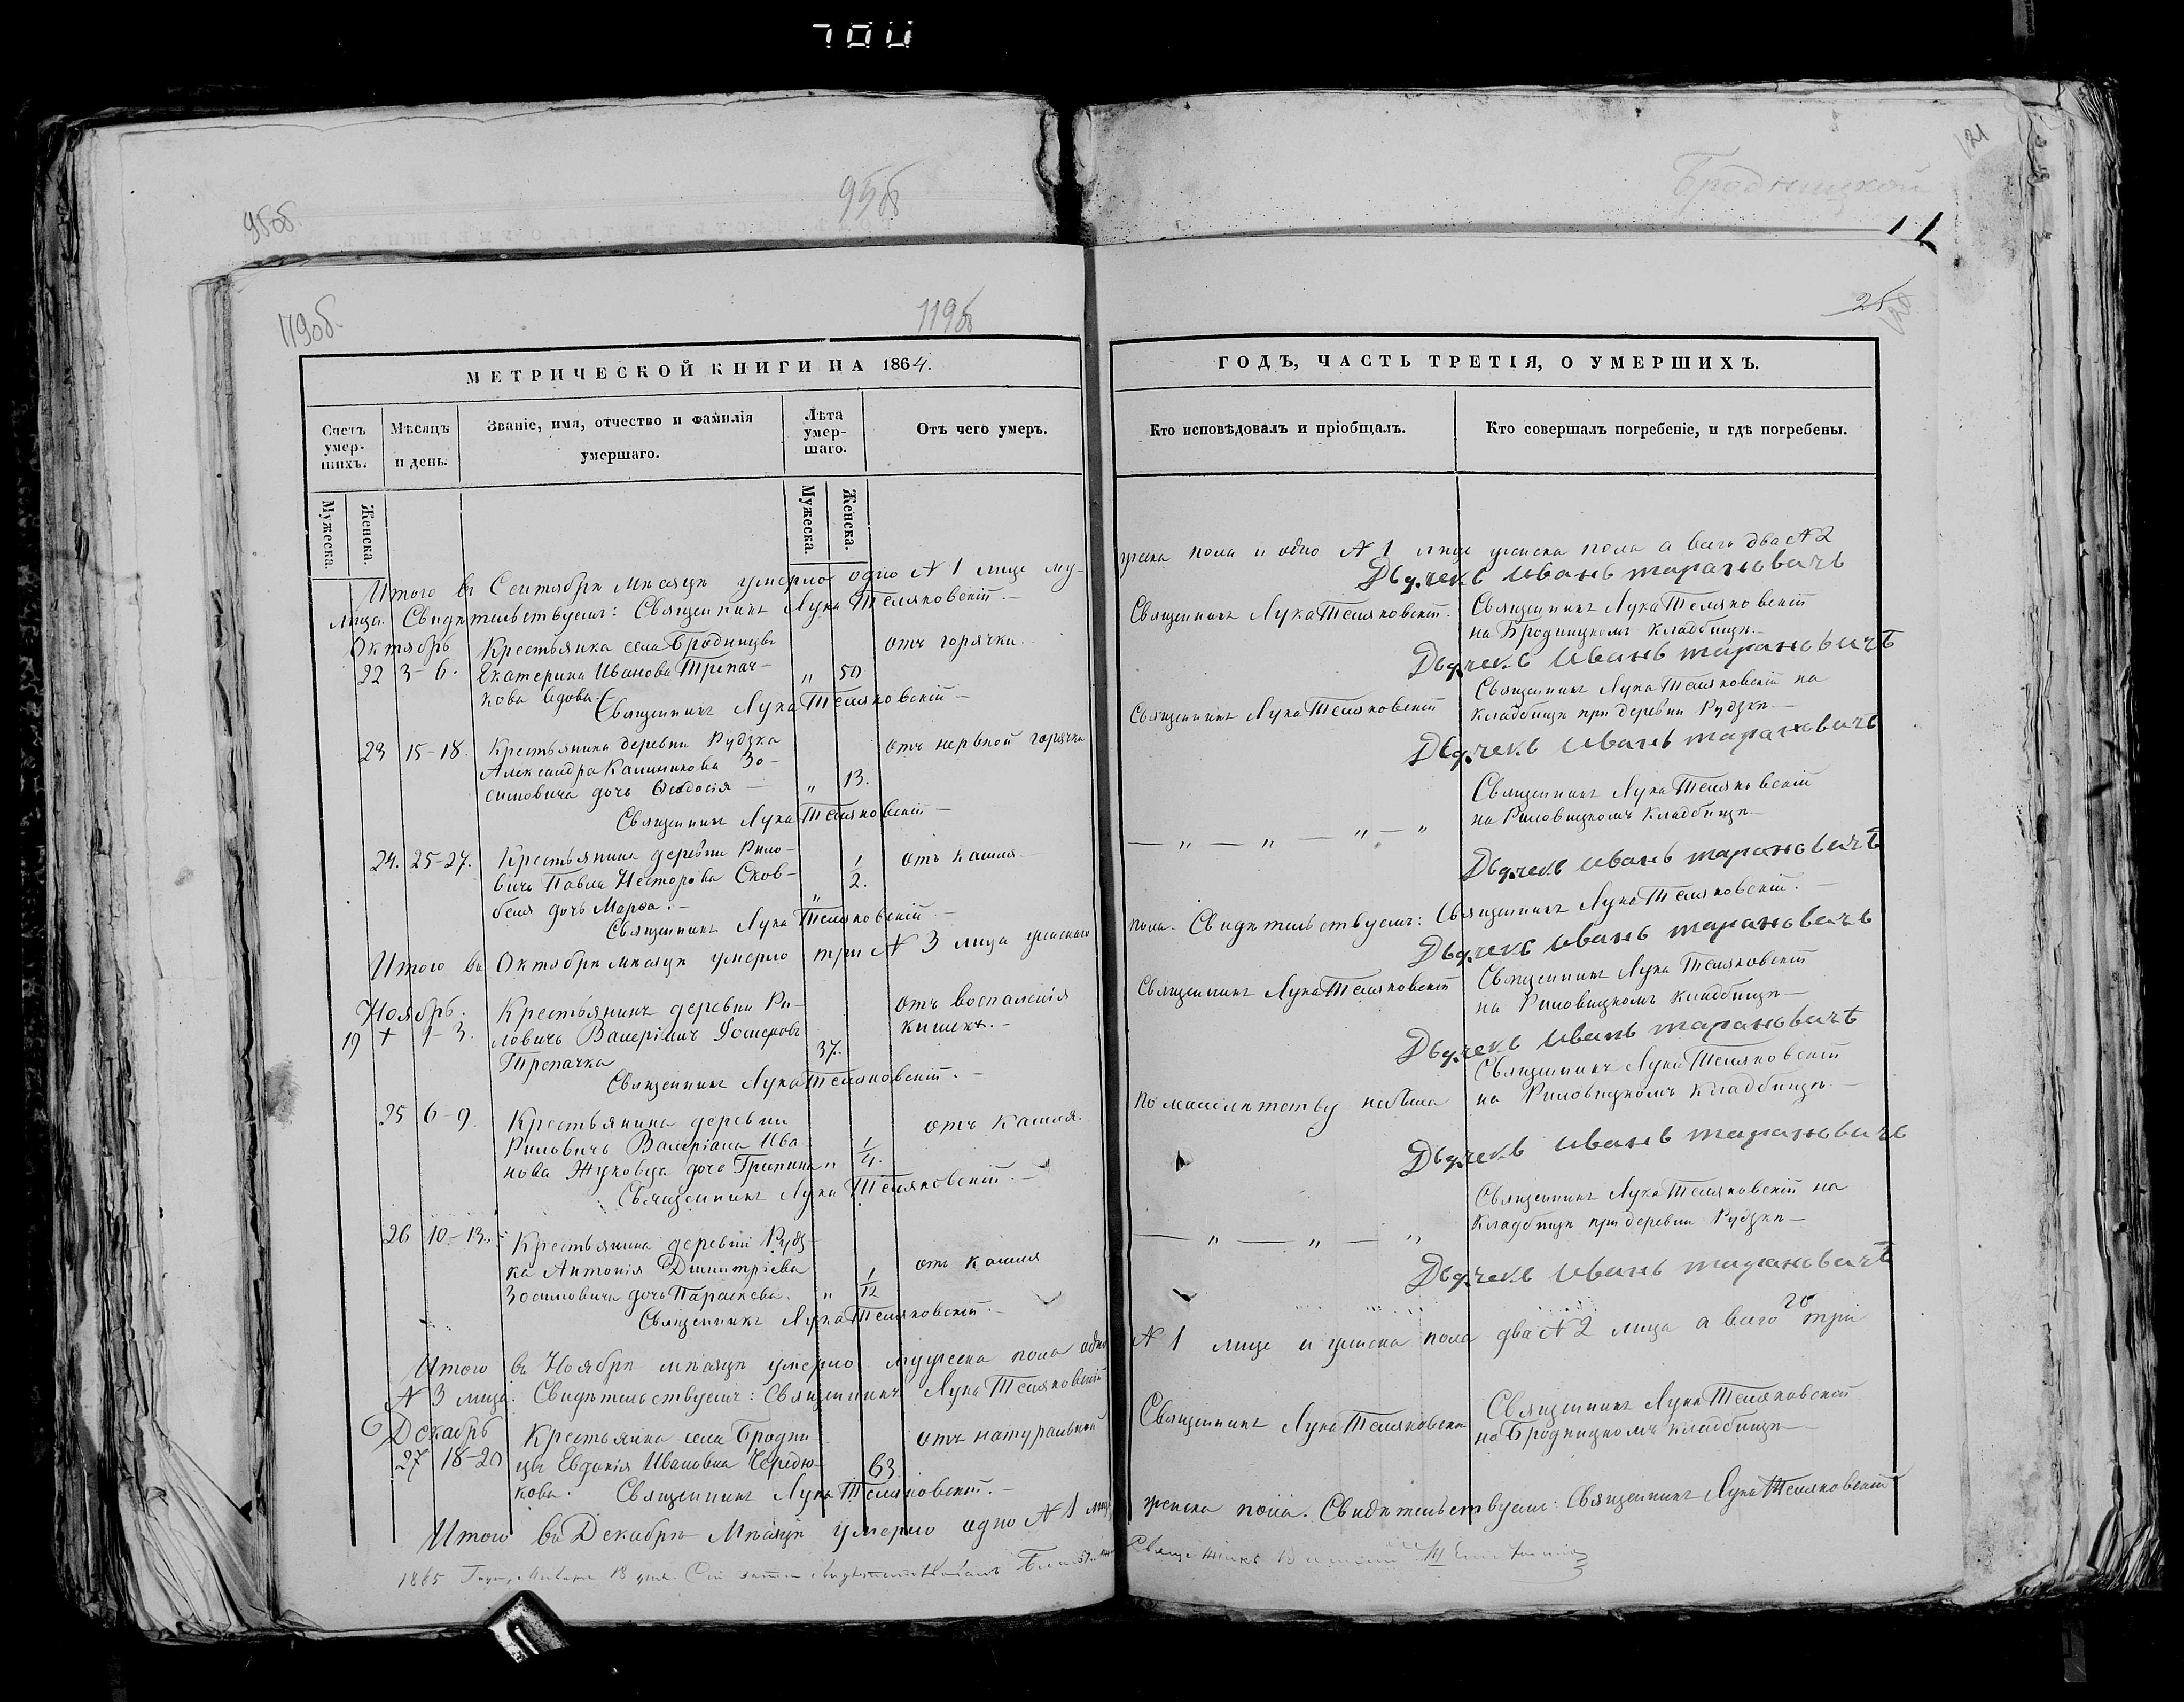 700
Бродницкой
121
95об.
95об
119об.
119об
25
МЕТРИЧЕСКОЙ КНИГИ НА 1864.
Счетъ умер-шихъ.
Мѣсяцъ и день.
Званіе, имя, отчество и фамилія умершаго.
Лѣта умер-шаго.
Отъ чего умеръ.
Мужеска.
Женска.
Мужеска.
Женска.
Итого въ Сентябрѣ мѣсяцѣ умерло одно №1 лице му-
лица. Свидѣтельствуемъ: Священникъ Лука Теляковскій.
Октябрь
22 3-6. Крестьянка села Бродницы
Екатерина Иванова Трепач-
кова вдова. „ 50 отъ горячки.
Священникъ Лука Теляковскій
23 15-18. Крестьянина деревни Рудзка
Александра Калиникова Зо-
симовича дочь Ѳеодосія „ 13. отъ нервной горячки
Священникъ Лука Теляковскій
24. 25-27. Крестьянина деревни Рило-
вичь Павла Несторова Сков-
беля дочь Марѳа. „ 1/2. отъ кашля
Священникъ Лука Теляковскій
Итого въ Октябрѣ мѣсяцѣ умерло три №3 лица женскаго
Ноябрь.
19 + 1-3. Крестьянинъ деревни Ри-
ловичь Валеріанъ
Трепачка 37. отъ воспаленія
кишекъ.
Священникъ Лука Теляковскій.
25 6-9. Крестьянина деревни
Риловичь Валеріана Ива
нова Жуковца дочь Грипина „ 1/4. отъ кашля.
Священникъ Лука Теляковскій
26 10-13. Крестьянина деревни Рудз-
ка Антонія Дмитріева
Зосимовича дочь Параскева. „ 1/12 отъ кашля
Священникъ Лука Теляковскій.
Итого въ Ноябрѣ мѣсяцѣ умерло мужеска пола одно
№3 лица. Свидѣтельствуемъ: Священникъ Лука Теляковскій
Декабрь
27 18-20 Крестьянка села Бродни
цы Евдокія Ивановна
кова. 63 отъ натуральной
Священникъ Лука Теляковскій.
Итого въ Декабрѣ мѣсяцѣ умерло одно №1 лице
1865 Января 18 дня.
ГОДЪ, ЧАСТЬ ТРЕТІЯ, О УМЕРШИХЪ.
Кто исповѣдовалъ и пріобщалъ.
Кто совершалъ погребеніе, и гдѣ погребены.
жеска пола и одно №1 лице женска пола а всего два №2
Дьячекъ Иванъ Тарановичъ
Священникъ Лука Теляковскій
Священникъ Лука Теляковскій
на Бродницкомъ кладбищѣ.
Дьячекъ Иванъ Тарановичъ
Священникъ Лука Теляковскій
Священникъ Лука Теляковскій на
кладбищѣ при деревни Рудзкѣ
Дьячекъ Иванъ Тарановичъ
— „ — „ — „ — „
Священникъ Лука Теляковскій
на Риловицкомъ кладбищѣ
Дьячекъ Иванъ Тарановичъ
пола. Свидѣтельствуемъ: Священникъ Лука Теляковскій.
Дьячекъ Иванъ Тарановичъ
Священникъ Лука Теляковскій
Священникъ Лука Теляковскій
на Риловицкомъ кладбищѣ
Дьячекъ Иванъ Тарановичъ
По малолѣтству небыла
Священникъ Лука Теляковскій
на Риловицкомъ кладбищѣ.
Дьячекъ Иванъ Тарановичъ
— „ — „ — „
Священникъ Лука Теляковскій на
кладбищѣ при деревни Рудзкѣ
Дьячекъ Иванъ Тарановичъ
№1 лице и женска пола два №2 лица а всего три
Священникъ Лука Теляковскій
Священникъ Лука Теляковскій
на Бродницкомъ кладбищѣ
женска пола. Свидѣтельствуемъ: Священникъ Лука Теляковскій
Священникъ